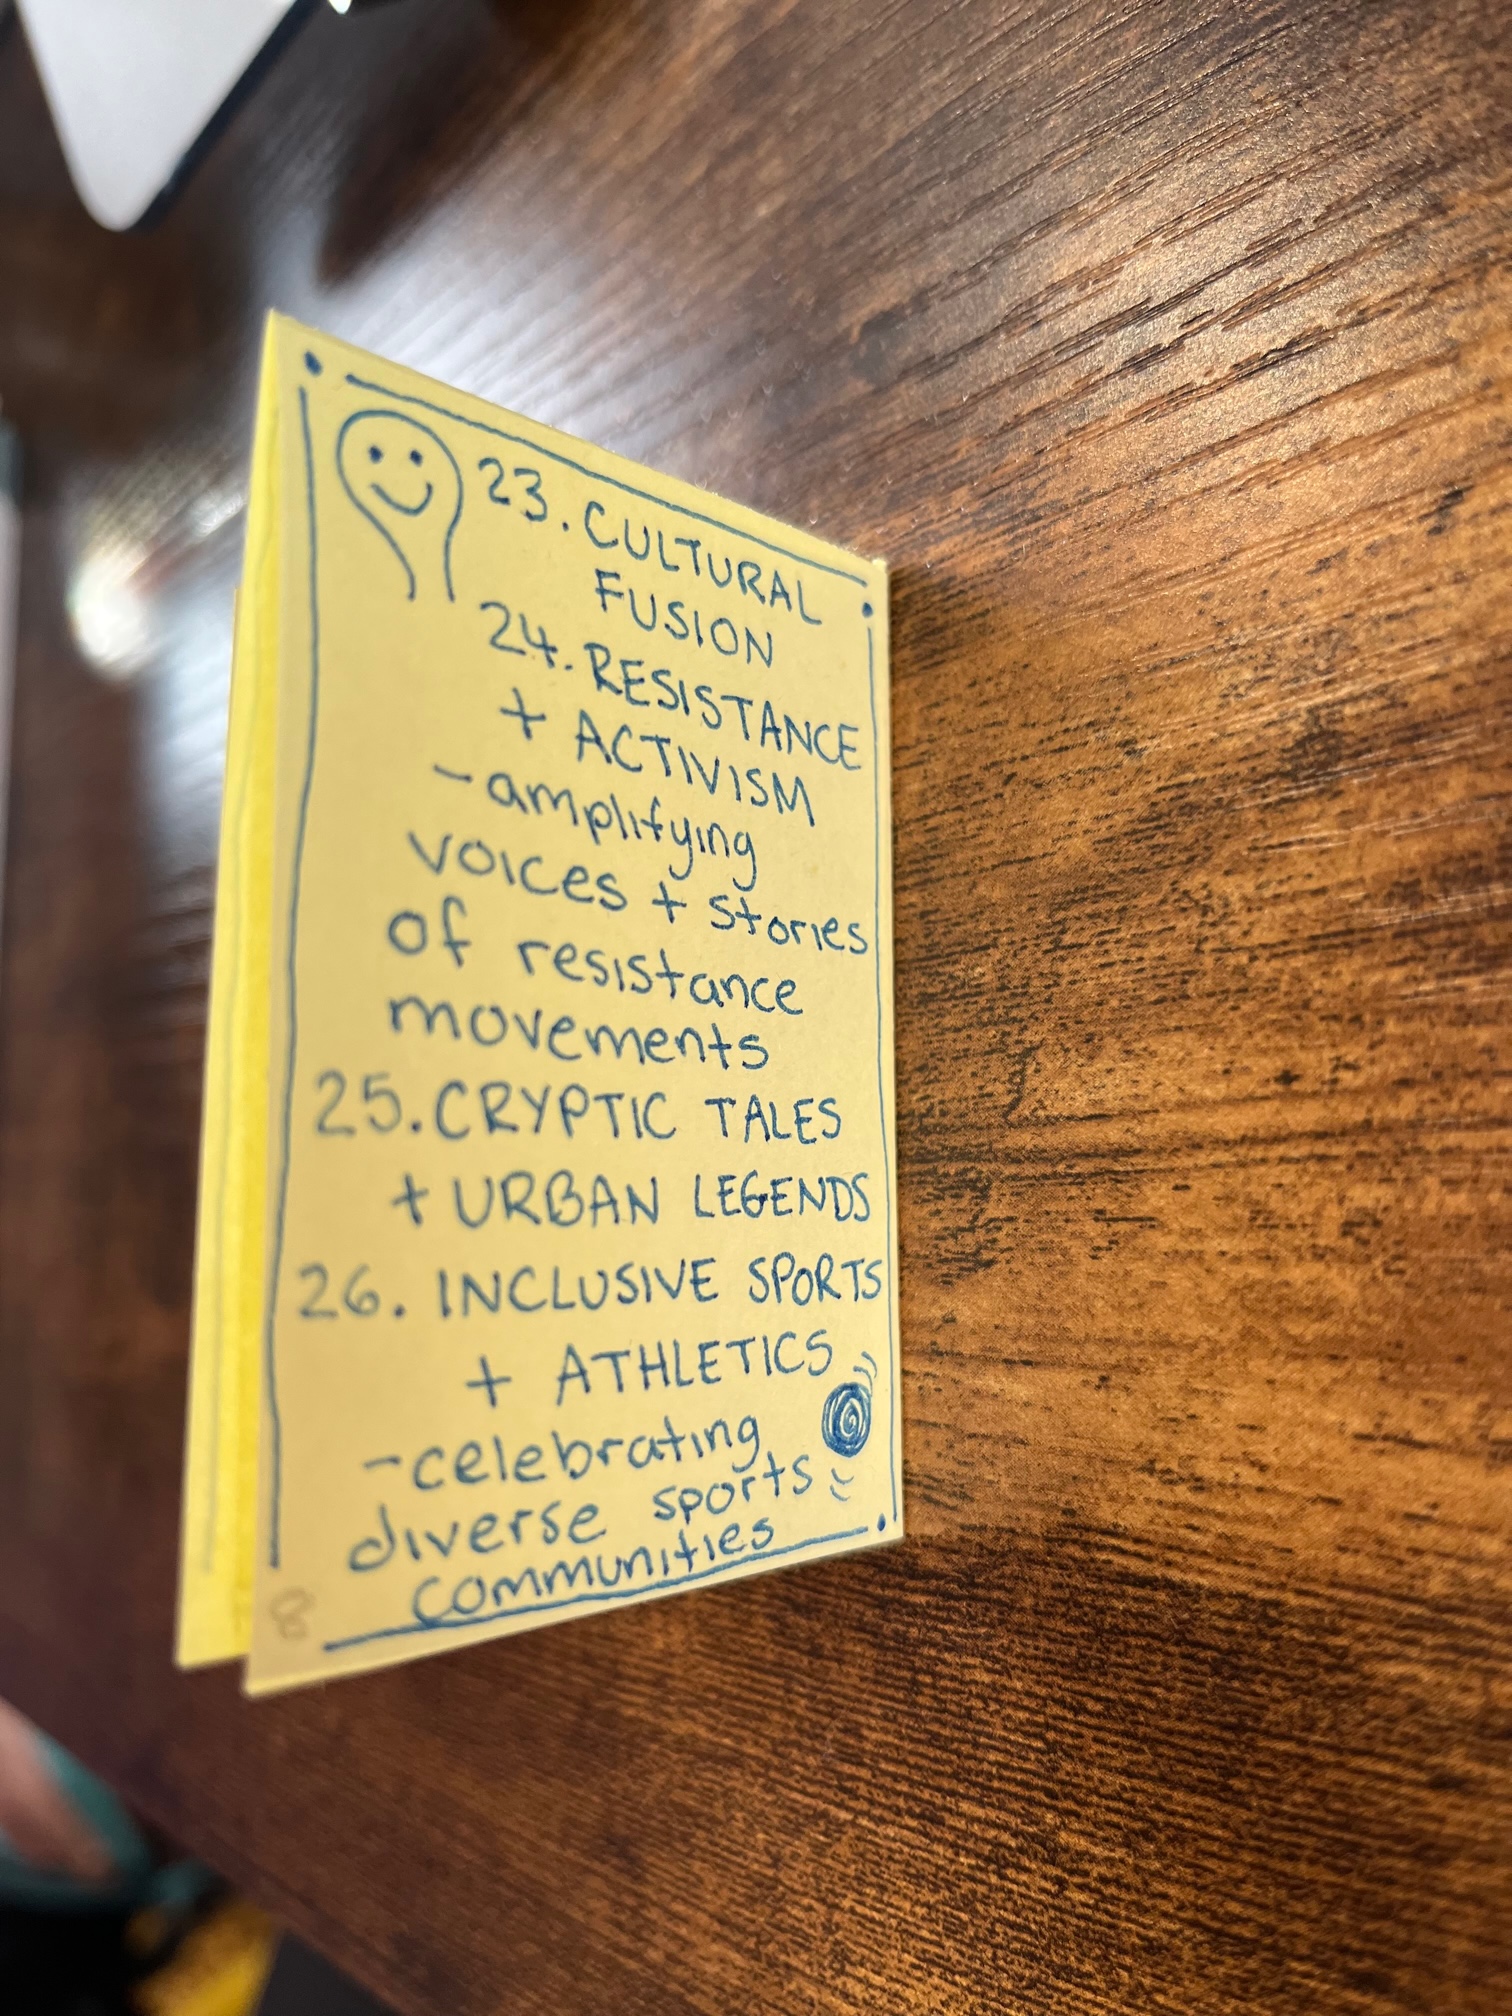 23. CULTURAL
FUSION
24. RESISTANCE
+ ACTIVISM
-amplifying
voices + stories
of resistance
movements
25. CRYPTIC TALES
+ URBAN LEGENDS
26. INCLUSIVE SPORTS
+ ATHLETICS
-celebrating
diverse sports
communities
8